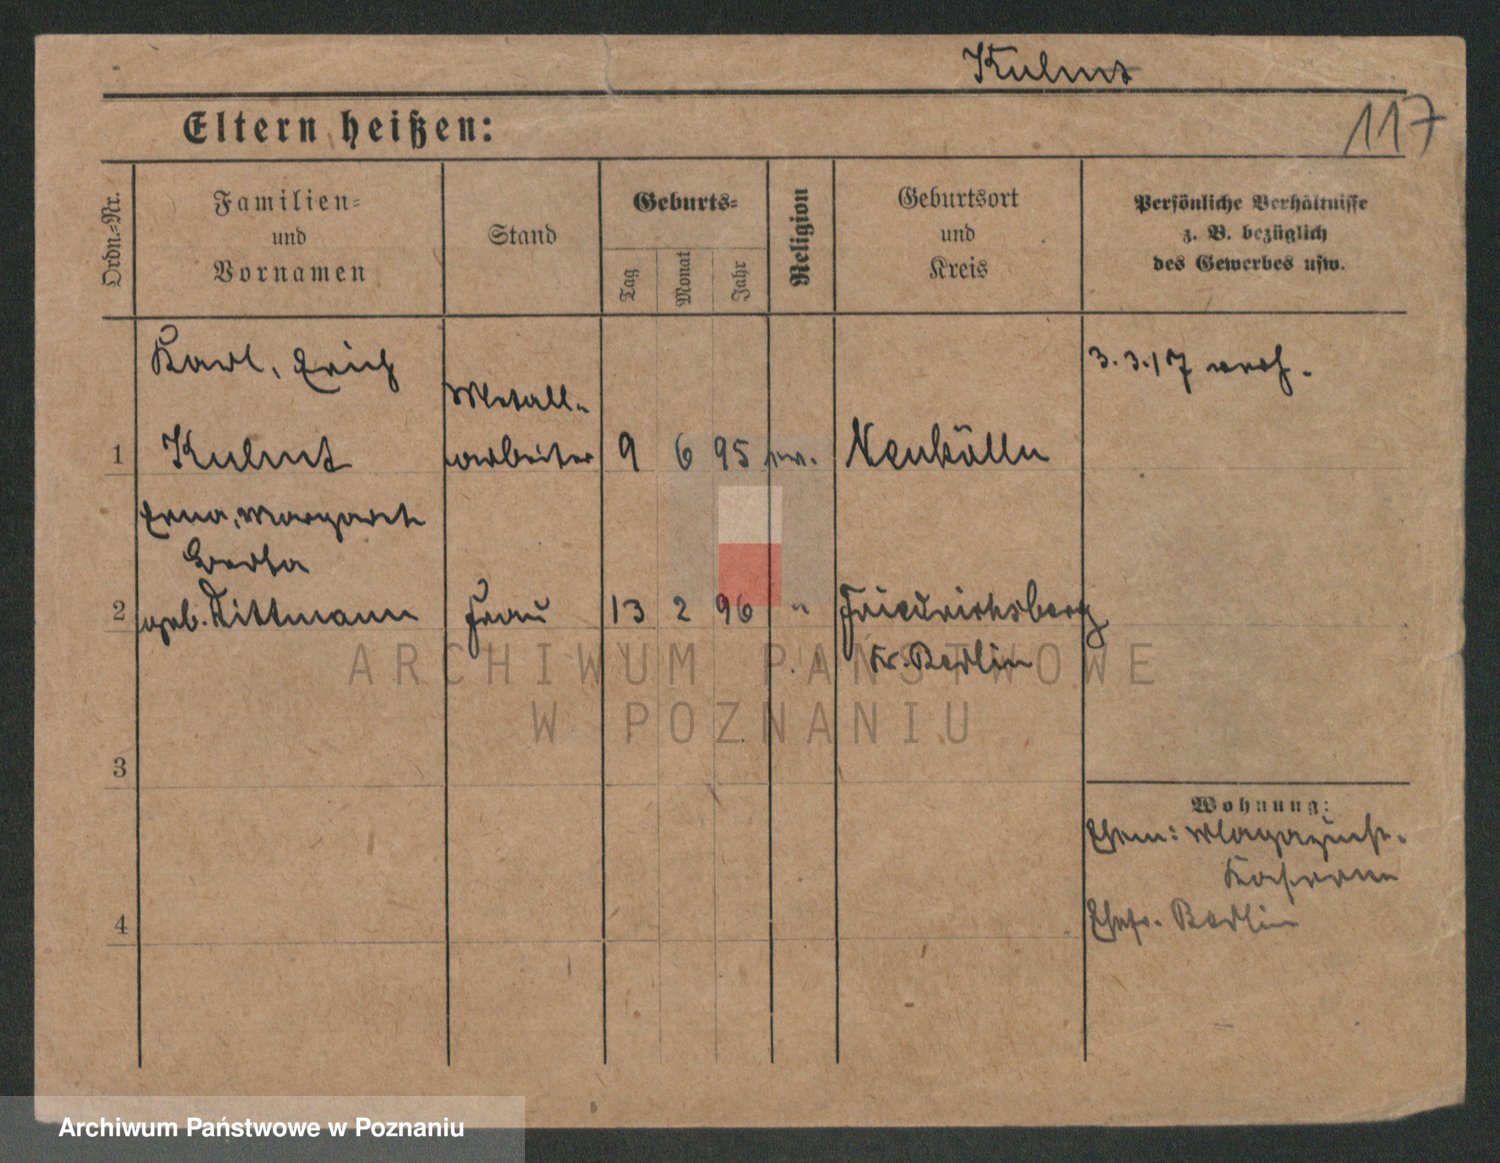 Kulms
117
Eltern heißen:
Ordn.-Nr.
Familien-
und
Vornamen
Stand
Geburts-
Tag
Monat
Jahr
Religion
Geburtsort
und
Kreis
Persönliche Verhältnisse
z. B. bezüglich
des Gewerbes usw.
Karl, Erich
Kulms
1
Metall-
arbeiter
9 6 95 ev.
Neukölln
3.3.17 verh.
Erna, Margarete
Berta
geb. Tittmann
2
Frau
13 2 96 "
Friedrichsberg
Kr. Berlin
3
4
Wohnung:
Ehem: Magazinst.
Kaserne
Ehefr. Berlin
ARCHIWUM PAŃSTWOWE
W POZNANIU
Archiwum Państwowe w Poznaniu